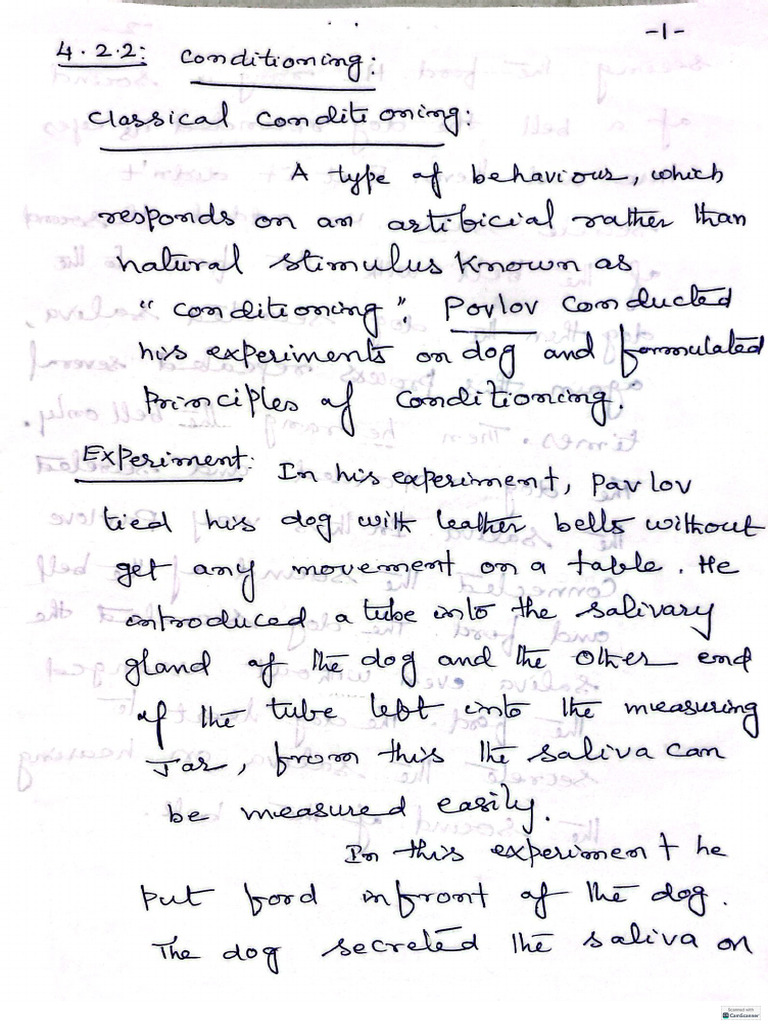 -1-
4.2.2: Conditioning:
Classical Conditioning:
A type of behaviour, which
responds on an artificial rather than
natural stimulus known as
"conditioning". Povlov conducted
his experiments on dog and formulated
principles of conditioning.
Experiment: In his experiment, Pavlov
tied his dog with leather bells without
get any movement on a table. He
introduced a tube into the salivary
gland of the dog and the other end
of the tube left into the measuring
Jar, from this the saliva can
be measured easily.
In this experiment he
put food infront of the dog.
The dog secreted the saliva on
Scanned with
CamScanner